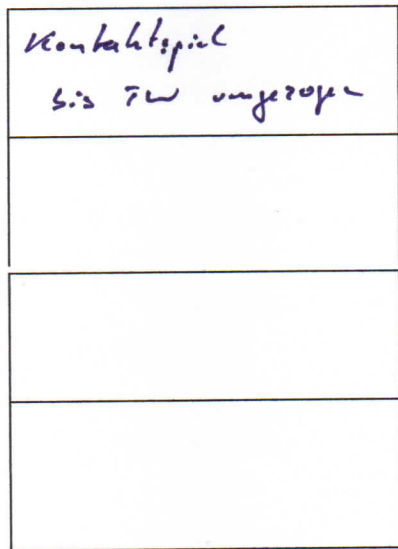 Kontaktspiel
bis TW umgezogen